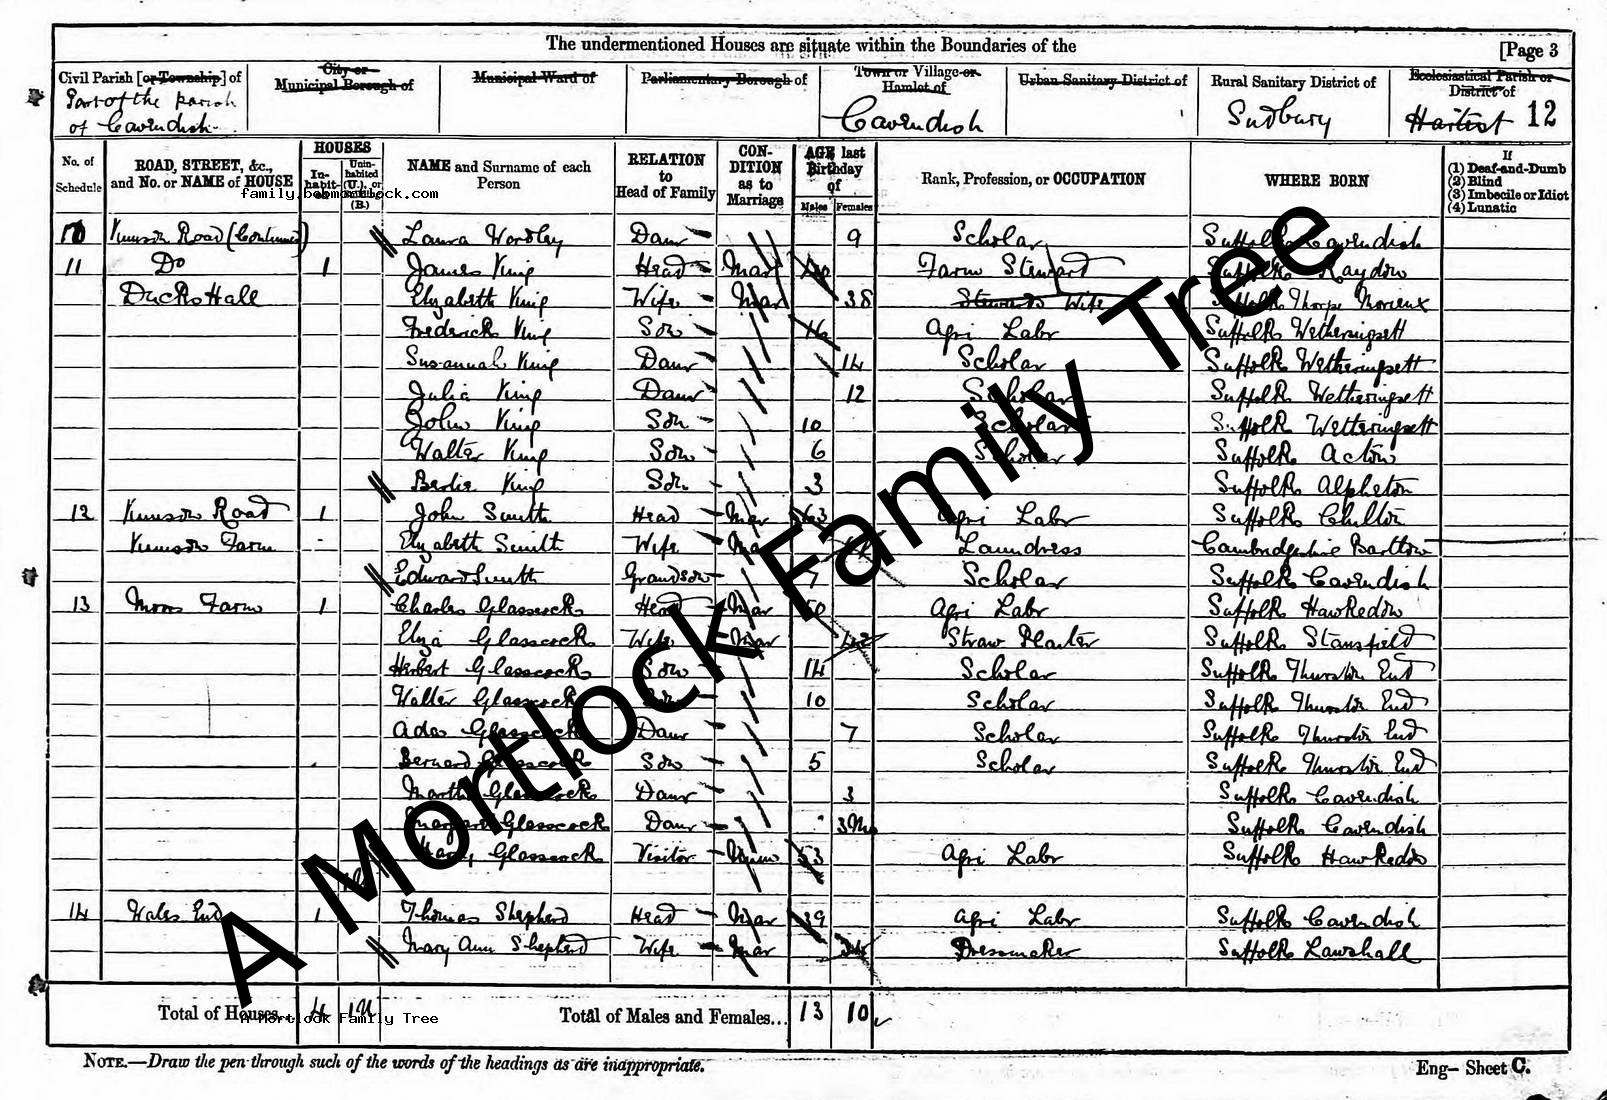 The undermentioned Houses are situate within the Boundaries of the
[Page 3
Civil Parish [or Township] of
City or Municipal Borough of
Municipal Ward of
Parliamentary Borough of
Town or Village or Hamlet of
Urban Sanitary District of
Rural Sanitary District of
Ecclesiastical Parish or District of
Part of the parish of Cavendish
Cavendish
Sudbury
Hartist 12
No. of Schedule
ROAD, STREET, &c., and No. or NAME of HOUSE
HOUSES
In-habit-ed
Unin-habited (U.), or (B.)
NAME and Surname of each Person
RELATION to Head of Family
CON-DITION as to Marriage
AGE last Birthday of
Males Females
Rank, Profession, or OCCUPATION
WHERE BORN
If (1) Deaf-and-Dumb (2) Blind (3) Imbecile or Idiot (4) Lunatic
family.bobmortlock.com
10 Road (Continued) Laura Wordley Daur 9 Scholar Suffolk Cavendish
11 Do 1 James King Head Mar Farm Steward Suffolk Raydon
Ducks Hall Elizabeth King Wife Mar 38 Stewards Wife Suffolk Thorpe Morieux
Frederick King Son 16 Agri Labr Suffolk Wetheringsett
Susannah King Daur 14 Scholar Suffolk Wetheringsett
Julia King Daur 12 Scholar Suffolk Wetheringsett
John King Son 10 Scholar Suffolk Wetheringsett
Walter King Son 6 Scholar Suffolk Acton
Bertie King Son 3 Suffolk Alpheton
12 Road 1 John Smith Head Mar 63 Agri Labr Suffolk Chilton
Farm Elizabeth Smith Wife Mar Laundress Cambridgeshire Bartlow
Edward Smith Grandson 7 Scholar Suffolk Cavendish
13 Moors Farm 1 Charles Glasscock Head Mar 50 Agri Labr Suffolk Hawkedon
Eliza Glasscock Wife Mar 42 Straw Plaiter Suffolk Stansfield
Herbert Glasscock Son 14 Scholar Suffolk Thurston End
Walter Glasscock Son 10 Scholar Suffolk Thurston End
Ada Glasscock Daur 7 Scholar Suffolk Thurston End
Bernard Glasscock Son 5 Scholar Suffolk Thurston End
Martha Glasscock Daur 3 Suffolk Cavendish
Margaret Glasscock Daur 3Mo Suffolk Cavendish
Harry Glasscock Visitor Unm 53 Agri Labr Suffolk Hawkedon
1U
14 Wales End 1 Thomas Shepherd Head Mar 39 Agri Labr Suffolk Cavendish
Mary Ann Shepherd Wife Mar Dressmaker Suffolk Lawshall
Total of Houses... 4 1U
Total of Males and Females... 13 10
A Mortlock Family Tree
A Mortlock Family Tree
NOTE.—Draw the pen through such of the words of the headings as are inappropriate.
Eng— Sheet C.